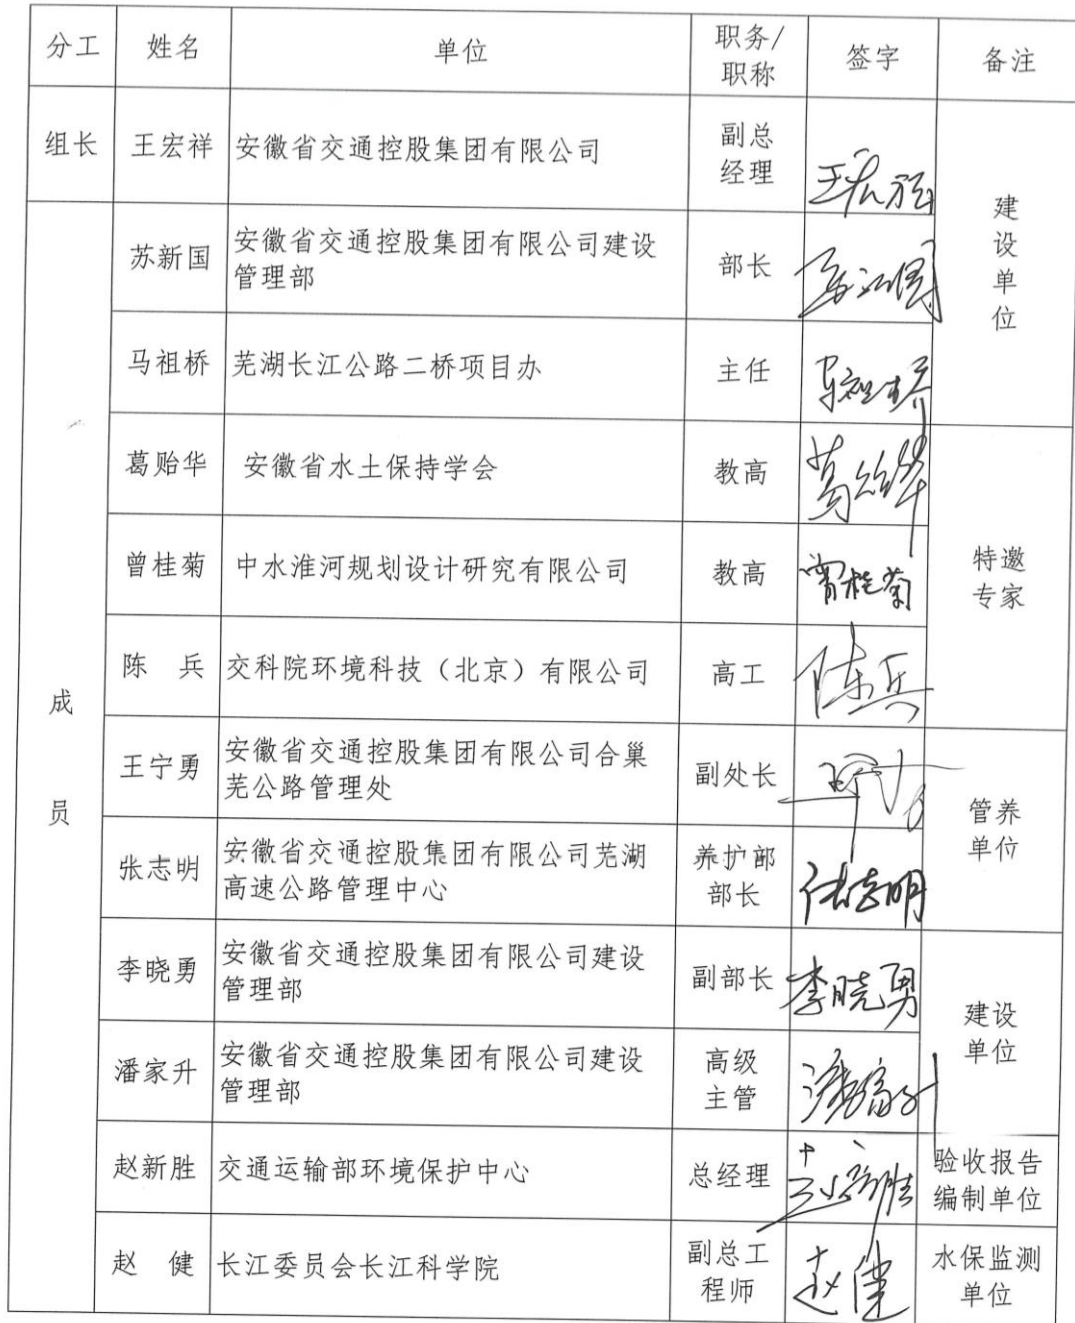 分工 姓名 单位 职务/职称 签字 备注
组长 王宏祥 安徽省交通控股集团有限公司 副总经理 王宏祥 建设单位
成员 苏新国 安徽省交通控股集团有限公司建设管理部 部长 苏新国
马祖桥 芜湖长江公路二桥项目办 主任 马祖桥
葛贻华 安徽省水土保持学会 教高 葛贻华 特邀专家
曾桂菊 中水淮河规划设计研究有限公司 教高 曾桂菊
陈 兵 交科院环境科技（北京）有限公司 高工 陈兵
王宁勇 安徽省交通控股集团有限公司合巢芜公路管理处 副处长 管养单位
张志明 安徽省交通控股集团有限公司芜湖高速公路管理中心 养护部部长 张志明
李晓勇 安徽省交通控股集团有限公司建设管理部 副部长 李晓勇 建设单位
潘家升 安徽省交通控股集团有限公司建设管理部 高级主管 潘家升
赵新胜 交通运输部环境保护中心 总经理 赵新胜 验收报告编制单位
赵 健 长江委员会长江科学院 副总工程师 赵健 水保监测单位